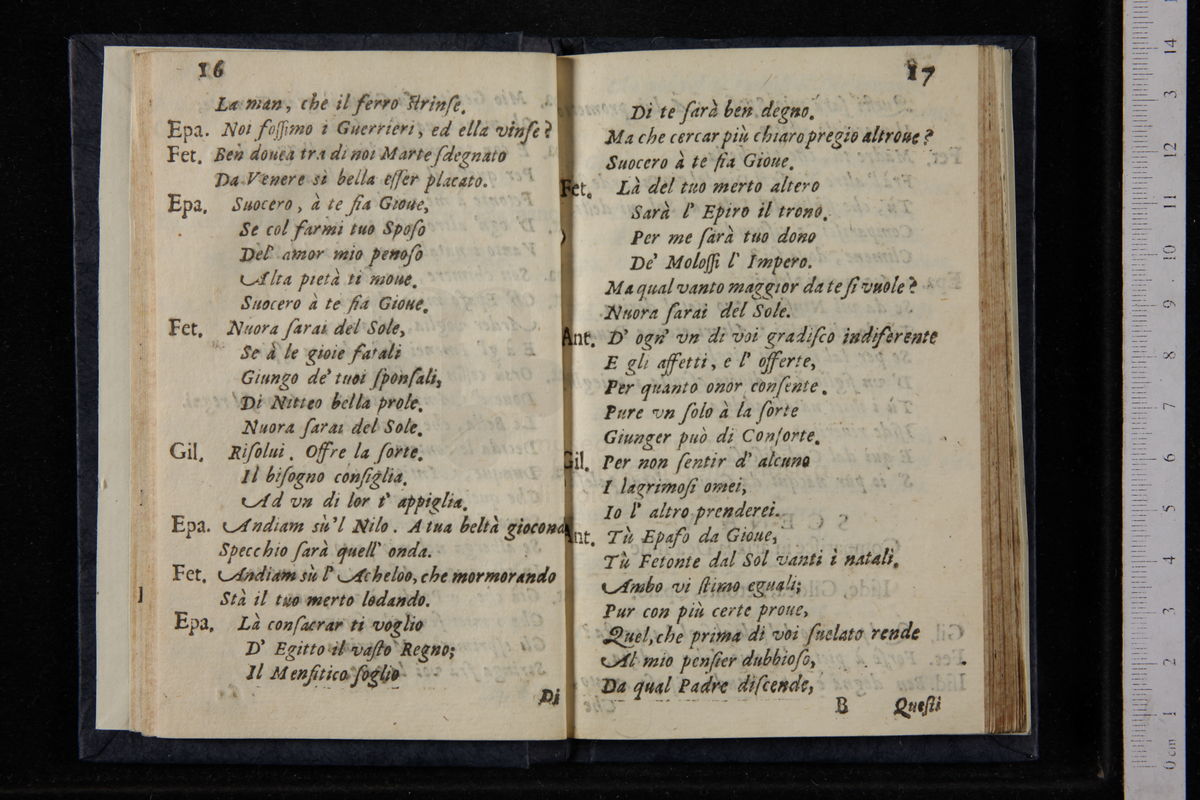 16
La man, che il ferro ſtrinſe.
Epa. Noi foſſimo i Guerrieri, ed ella vinſe?
Fet. Ben douea tra di noi Marte ſdegnato
Da Venere sì bella eſſer placato.
Epa. Suocero, à te ſia Gioue,
Se col farmi tuo Spoſo
Del' amor mio penoſo
Alta pietà ti moue.
Suocero à te ſia Gioue.
Fet. Nuora ſarai del Sole,
Se à le gioie fatali
Giungo de' tuoi ſponſali,
Di Nitteo bella prole.
Nuora ſarai del Sole.
Gil. Riſolui. Offre la ſorte.
Il biſogno conſiglia.
Ad vn di lor t' appiglia.
Epa. Andiam sù'l Nilo. A tua beltà gioconda
Specchio ſarà quell' onda.
Fet. Andiam sù l' Acheloo, che mormorando
Stà il tuo merto lodando.
Epa. Là conſacrar ti voglio
D' Egitto il vaſto Regno;
Il Menfitico ſoglio
Di
17
Di te ſarà ben degno.
Ma che cercar più chiaro pregio altroue?
Suocero à te ſia Gioue.
Fet. Là del tuo merto altero
Sarà l' Epiro il trono.
Per me ſarà tuo dono
De' Moloſſi l' Impero.
Ma qual vanto maggior da te ſi vuole?
Nuora ſarai del Sole.
Ant. D' ogn' vn di voi gradiſco indiferente
E gli affetti, e l' offerte,
Per quanto onor conſente.
Pure vn ſolo à la ſorte
Giunger può di Conſorte.
Gil. Per non ſentir d' alcuno
I lagrimoſi omei,
Io l' altro prenderei.
Ant. Tù Epafo da Gioue,
Tù Fetonte dal Sol vanti i natali.
Ambo vi ſtimo eguali;
Pur con più certe proue,
Quel, che prima di voi ſuelato rende
Al mio penſier dubbioſo,
Da qual Padre diſcende,
B Queſti
14
3
12
11
10
9
8
7
6
5
4
3
2
1
0 cm